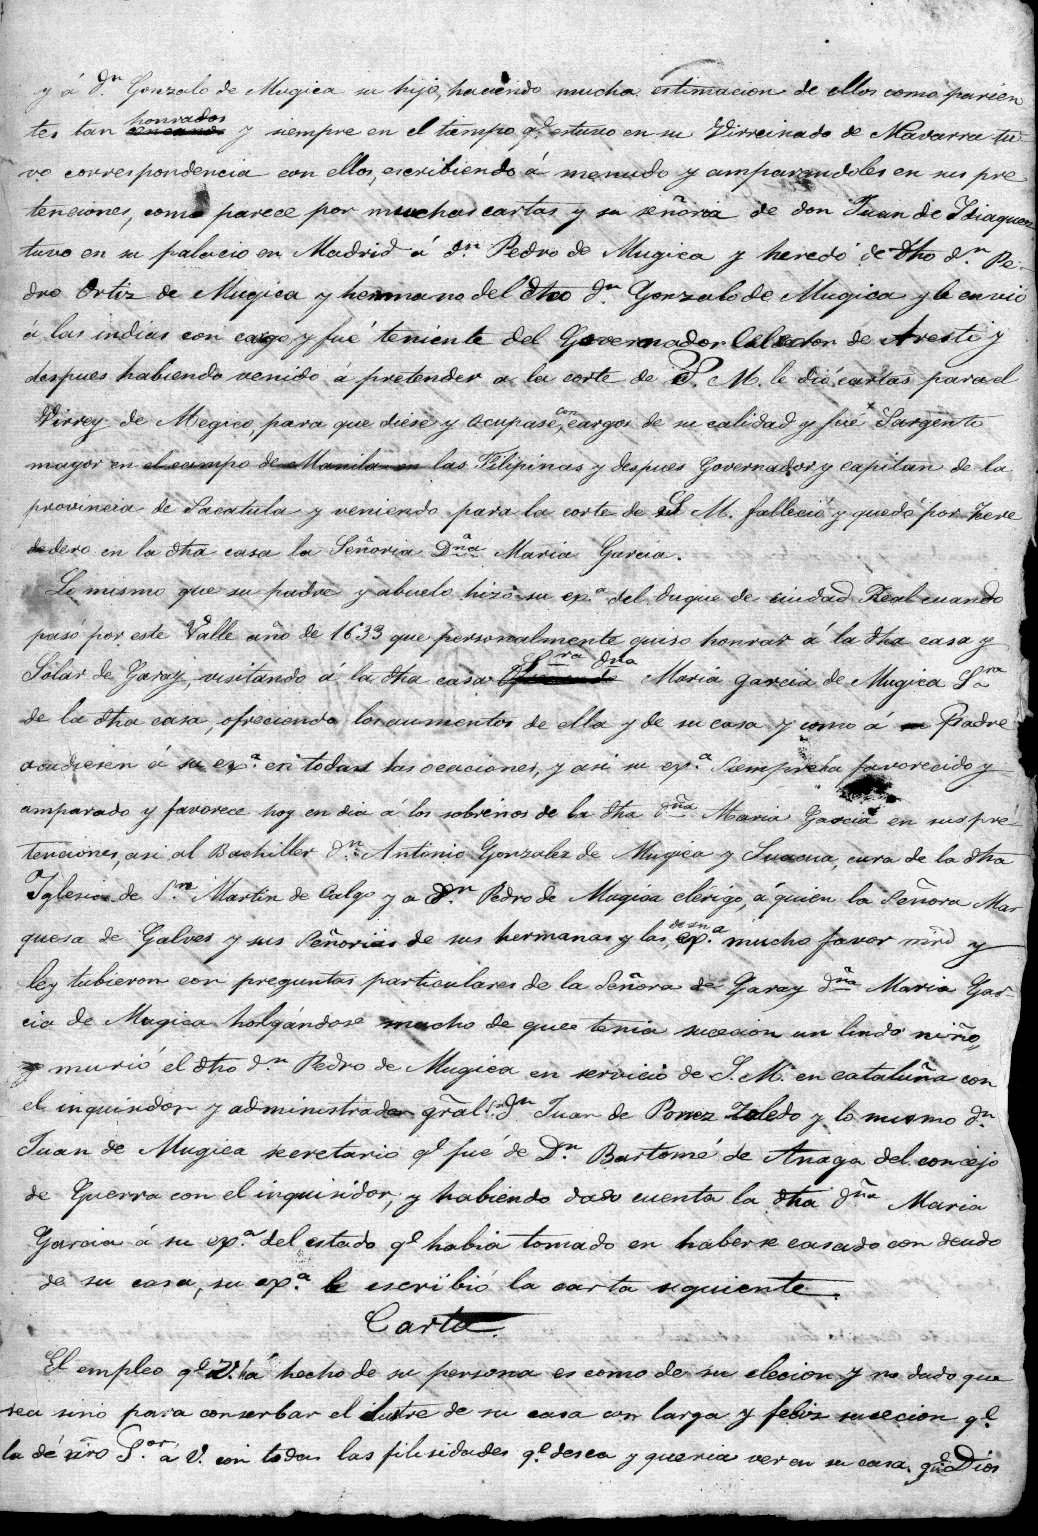 y á Dn Gonzalo de Mugica su hijo, haciendo mucha estimacion de ellos como parien
tes tan honrados y siempre en el tiempo qe estuvo en su Virreinado de Navarra tu
vo correspondencia con ellos, escribiendo á menudo y amparandoles en sus pre
tenciones, como parece por muchas cartas y su señoria de don Juan de Idiaquez
tuvo en su palacio en Madrid á dn Pedro de Mugica y heredó de dho dn Pe
dro Ortiz de Mugica y hermano del dho dn Gonzalo de Mugica y le envió
á las indias con cargo y fué teniente del Governador de Aresti y
despues habiendo venido á pretender a la corte de S. M. le dió cartas para el
Virrey de Megico, para que diese y ocupase con cargos de su calidad y fué Sargento
mayor en el campo de Manila en las Filipinas y despues Governador y capitan de la
provincia de Sacatula y veniendo para la corte de S. M. falleció y quedó por here
dero en la dha casa la Señoria Dña Maria Garcia.
Lo mismo que su padre y abuelo hizo su exa del duque de ciudad Real cuando
pasó por este Valle año de 1633 que personalmente quiso honrar á la dha casa y
Solar de Garay, visitando á la dha casa Sra dna Maria Garcia de Mugica Sra
de la dha casa, ofreciendo los aumentos de ella y de su casa y como á Padre
acudiesen á su exa. en todas las ocaciones, y asi su exa. siempre ha favorecido y
amparado y favorece hoy en dia á los sobrinos de la dha dña Maria Garcia en sus pre
tenciones, asi al Bachiller dn Antonio Gonzalez de Mugica y cura de la dha
Iglesia de Sn Martin de Calgo y a Dn Pedro de Mugica clerigo, á quien la Señora Mar
quesa de Galves y sus Señorias de sus hermanas y las de su exa. mucho favor y
ley tubieron con preguntas particulares de la Señora de Garay dña Maria Gar
cia de Mugica holgándose mucho de que tenia sucecion un lindo niño,
y murió el dho dn Pedro de Mugica en servicio de S. M. en cataluña con
el inquisidor y administrador gral. dn Juan de Toledo y lo mismo dn
Juan de Mugica secretario qe fué de Dn Bartomé de Anaga del concejo
de Guerra con el inquisidor, y habiendo dado cuenta la dha dña Maria
Garcia á su exa. del estado qe habia tomado en haberse casado con deudo
de su casa, su exa. le escribió la carta siguiente.
Carta.
El empleo qe V. há hecho de su persona es como de su elecion y no dado que
sea sino para conserbar el ilustre de su casa con larga y feliz sucecion qe.
la dé nro Sor á V. con todas las filisidades qe desea y queria ver en su casa, Dios